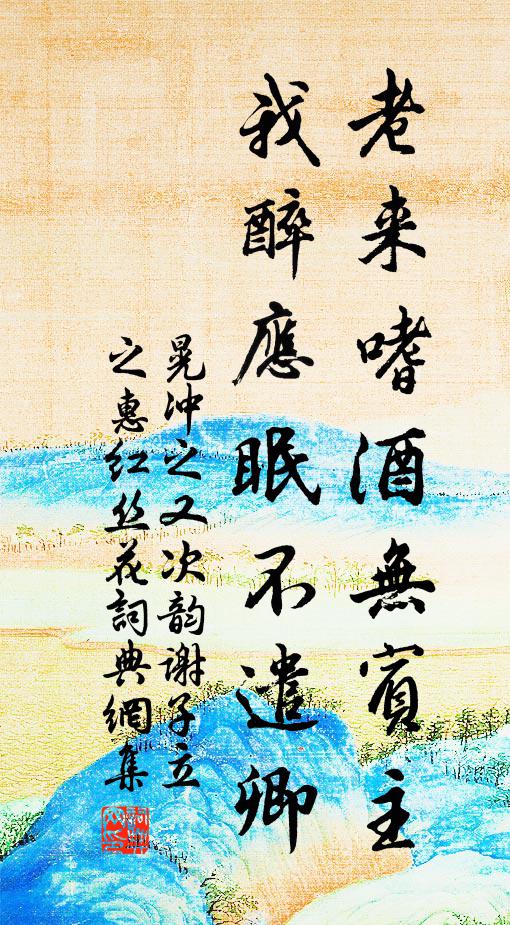 老来嗜酒無賓主
我醉應眠不遣卿
晁沖之又次韵谢子立
之惠红丝花詞典網集